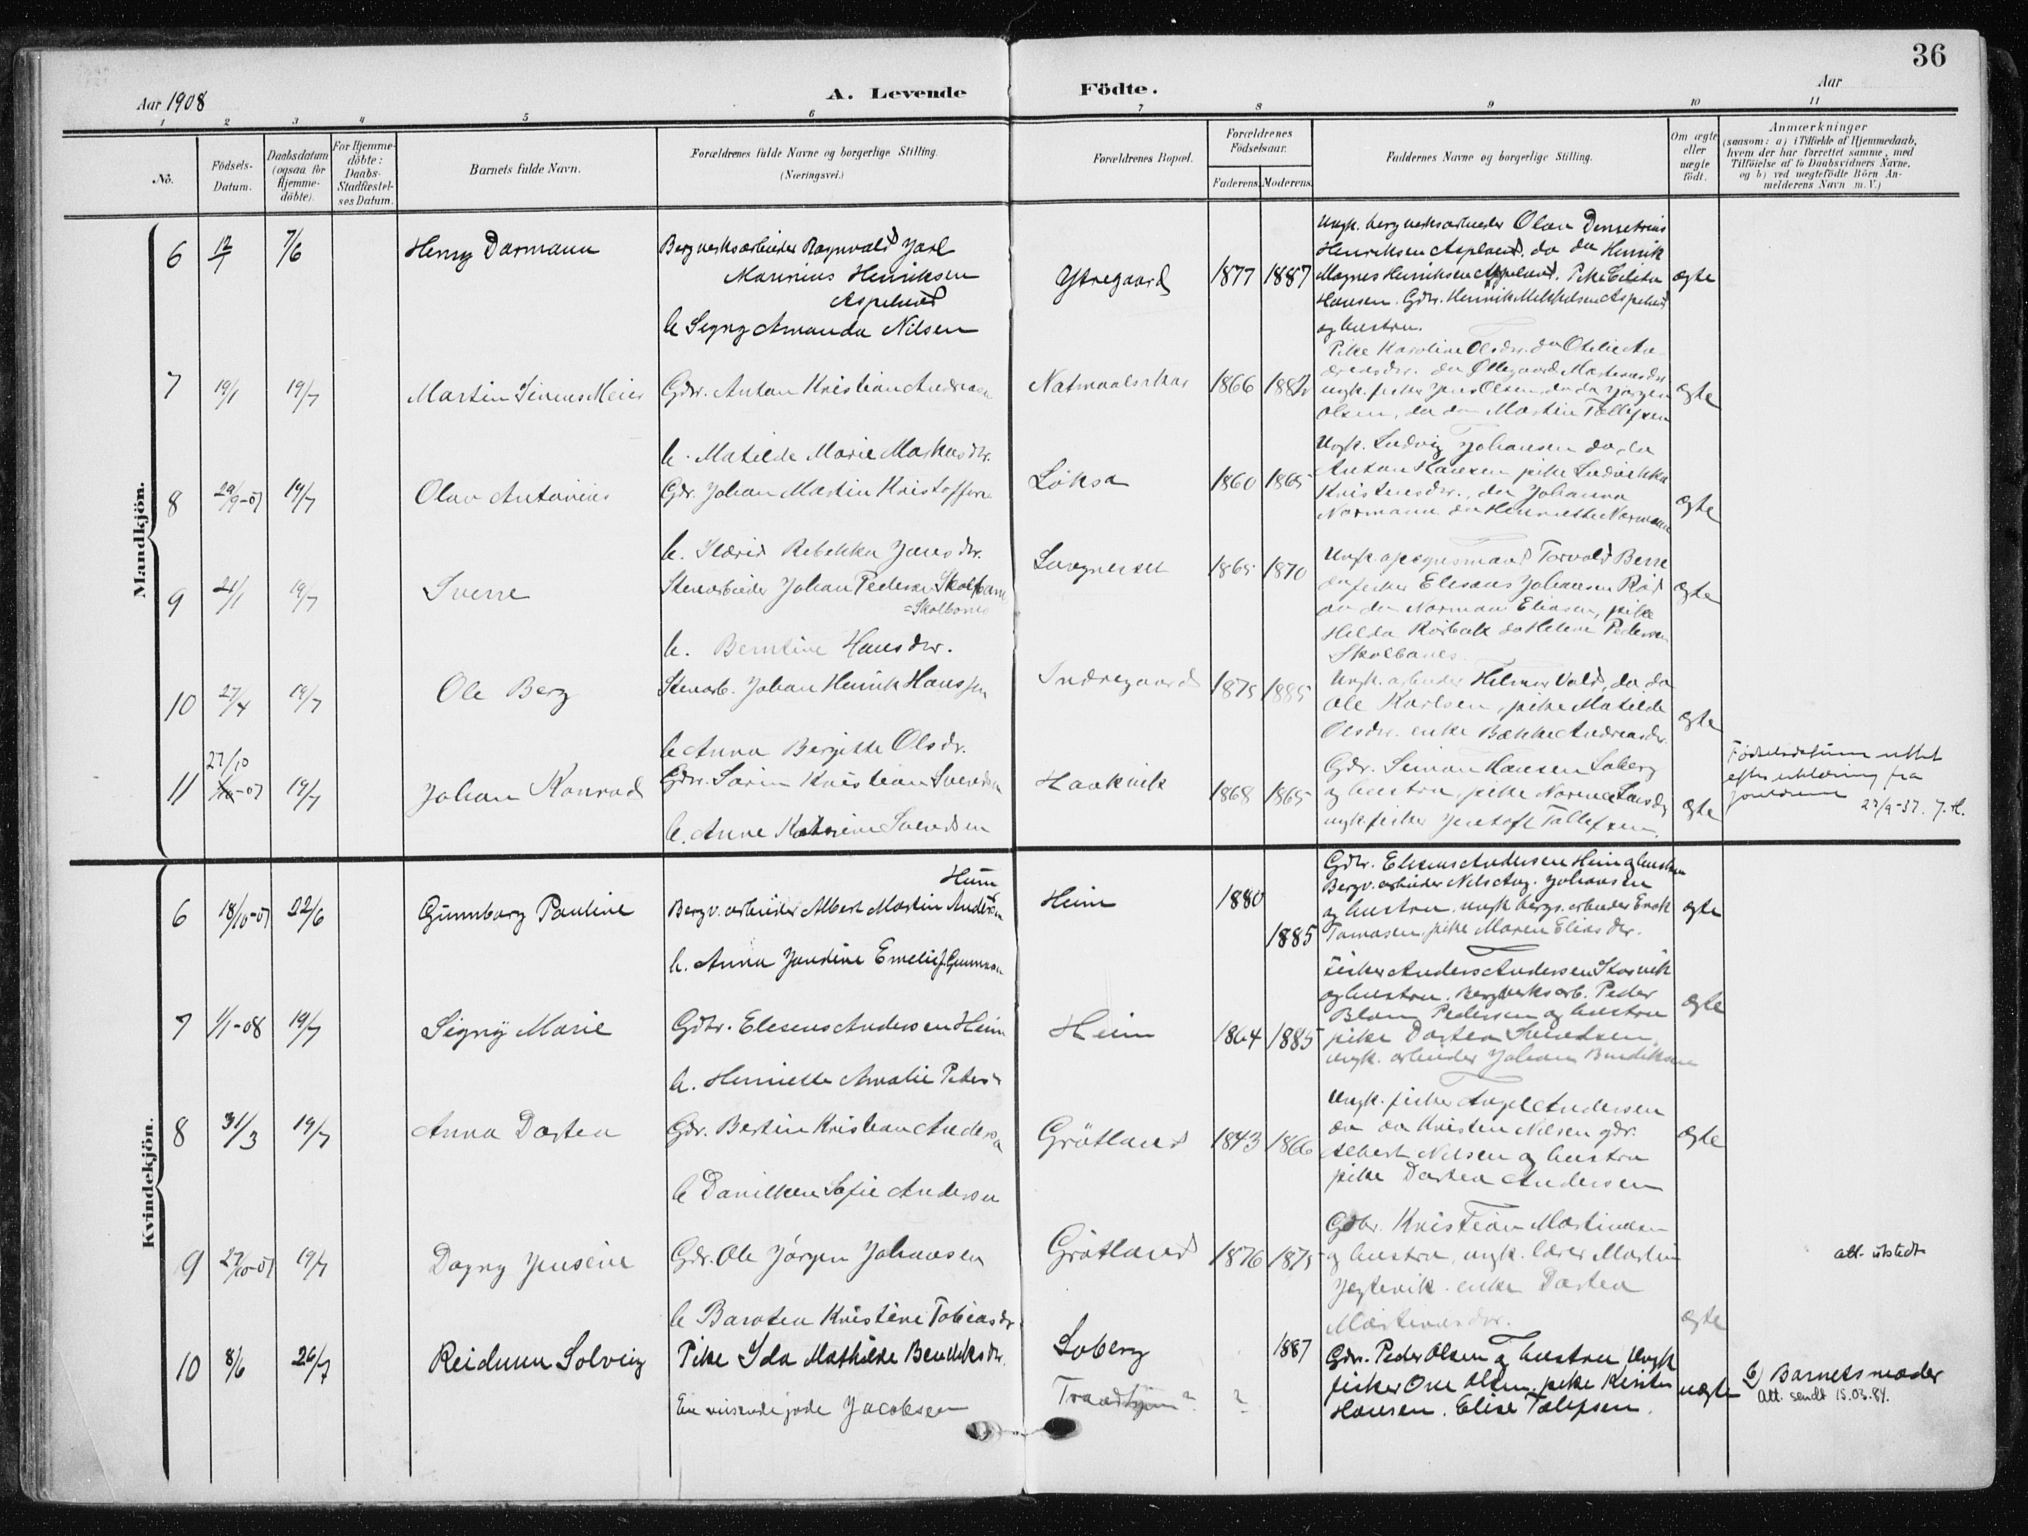 36
Aar 1908
A. Levende Födte.
Aar
1 2 3 4 5 6 7 8 9 10 11
No.
Födsels-
Datum.
Daabsdatum
(ogsaa for
Hjemme-
döbte).
For Hjemme-
döbte:
Daabs-
Stadfæstel-
ses Datum.
Barnets fulde Navn.
Forældrenes fulde Navne og borgerlige Stilling.
(Næringsvei.)
Forældrenes Bopæl.
Forældrenes
Födselsaar.
Faderens. Moderens.
Faddernes Navne og borgerlige Stilling.
Om ægte
eller
uægte
födt.
Anmærkninger
(saasom: a) i Tilfælde af Hjemmedaab,
hvem der har forrettet samme, med
Tilföielse af to Daabsvidners Navne,
og b) ved uægtefödte Börn An-
melderens Navn m. V.)
Mandkjön.
6 12/1 7/6 Henry Dormann
Bergverksarbeider Ragnvald Jarl
Maurius Henriksen
Aspelund
h Signy Amanda Nilsen
Ytregaard 1877 1887
Ungk. bergverksarbeider Olav Demetrius
Henriksen Aspelund, do do Henrik
Magnus Henriksen Aspelund. Pike
Hansen. Gdbr. Henrik Aspelund
og hustru.
ægte
7 19/1 19/7 Martin Meier
Gdr. Anton Kristian Andreas
h. Matilde Marie Markusdtr.
1866
Pike Karoline Olsdtr. do Otilie An-
dreasdtr. do
ungk. fisker Jens Olsen, do do Jørgen
Olsen, do do Martin Tollefsen
ægte
8 29/9-07 19/7 Olav Antonius
Gdr. Johan Martin Kristoffersen
h. Rebekka Jensdtr.
Løksa 1860 1865
Ungk. Ludvig Johansen do do
Anton Hansen pike
Kristensdtr., do Johanna
Normann do Henriette Normann
ægte
9 21/1 19/7 Sverre
Stenarbeider Johan Pedersen Skolbanes
= Skolbones
h. Berntine Hansdtr.
1865 1870
Ungk. Torvald Berre
do fisker Elesæus Johansen Rød
do do Norman Eliasen, pike
Hilda Rørbæk do Helene Pedersen
Skolbanes.
ægte
10 27/4 19/7 Ole Berg
Stenarb. Johan Henrik Hanssen
h Anna Bergitte Olsdr.
Indregaard 1875 1885
Ungk. arbeider Hilmar Vold, do do
Ole Karlsen, pike Matilde
Olsdr. enke Andreasdr.
ægte
11 27/10 -07 19/7 Johan Konrad
Gdr. Sørin Kristian Svendsen
h. Anne Katrine Svendsen
Haakvik 1868 1865
Gdr. Simon Hansen Soberg
og hustru, pike
ungk. fisker Jentoft Tollefsen.
ægte
Fødselsdatum rettet
efter erklæring fra
foreldrene 27/9-37. J.H.
Kvindekjön.
6 18/10-07 22/6 Gunnborg Pauline
Heim
Bergv. arbeider Albert Martin Andersen
h. Anna Jondine Emelie f. Gunnarsen
Heim 1880
1885
Gdbr. Elesæus Andersen Heim og hustru
Bergv. arbeider Nils Aug. Johansen
og hustru, ungk. bergv. arbeider Enok
Tomasen, pike Maren Eliasdr.
ægte
7 1/1-08 19/7 Signy Marie
Gdbr. Elesæus Andersen Heim
h. Henriette Amalie Petersdr
Heim 1864 1885
Fisker Anders Andersen Storvik
og hustru. Bergverksarb. Peder
Blom Pedersen og hustru
pike Dortea Svendsen,
ungk. arbeider Johan Bendiksen
ægte
8 31/3 19/7 Anna Dortea
Gdr. Bertin Kristian Andersen
h Danilken Sofie Andersen
Grötland 1843 1866
Ungk. fisker Angel Andersen
do do Kristen Nilsen gdr.
Albert Nilsen og hustru
pike Dortea Andersen
ægte
9 27/10-07 19/7 Dagny Jensine
Gdr. Ole Jørgen Johansen
h Barolea Kristine Tobiasdr.
Grötland 1876 1875
Gdbr. Kristian Martinusen
og hustru, ungk. lærer Martin
Jegtevik. enke Dortea
Martinusdr.
ægte
att. utstedt
10 8/6 26/7 Reidunn Solveig
Pike Ida Mathilde Bendiksdr.
Em. reisende jøde Jacobsen
Soberg
Trondhjem? ?
1887
Gdr. Peder Olsen og hustru Ungk
fisker Ove Olsen, pike Kirsten
Hansen. Elise Tollefsen.
uægte
b) Barnets moder
Att. sendt 15.03.84.